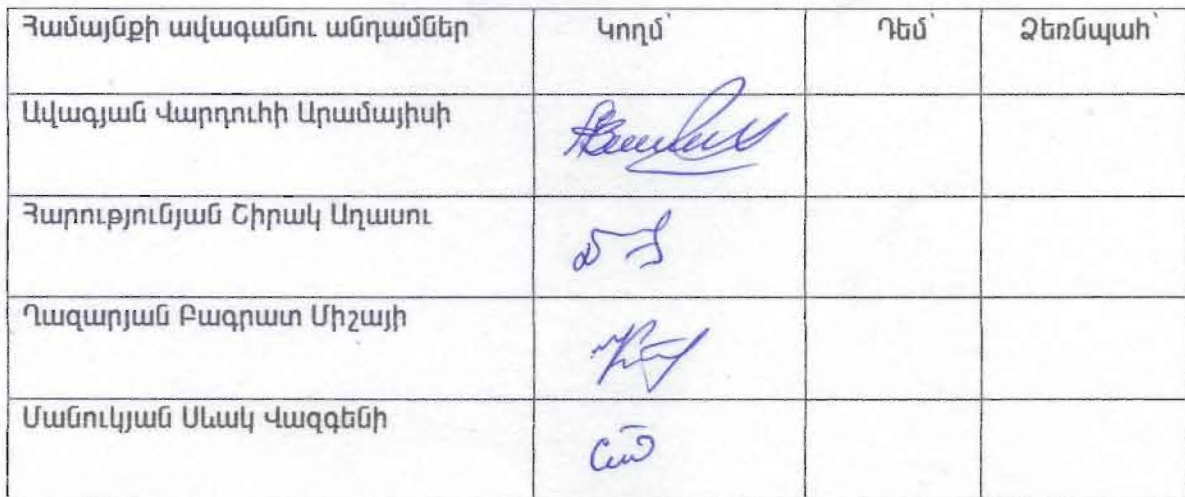 Համայնքի ավագանու անդամներ Կողմ՝ Դեմ՝ Ձեռնպահ՝
Ավագյան Վարդուհի Արամայիսի
Հարությունյան Շիրակ Աղասու
Ղազարյան Բագրատ Միշայի
Մանուկյան Սևակ Վազգենի